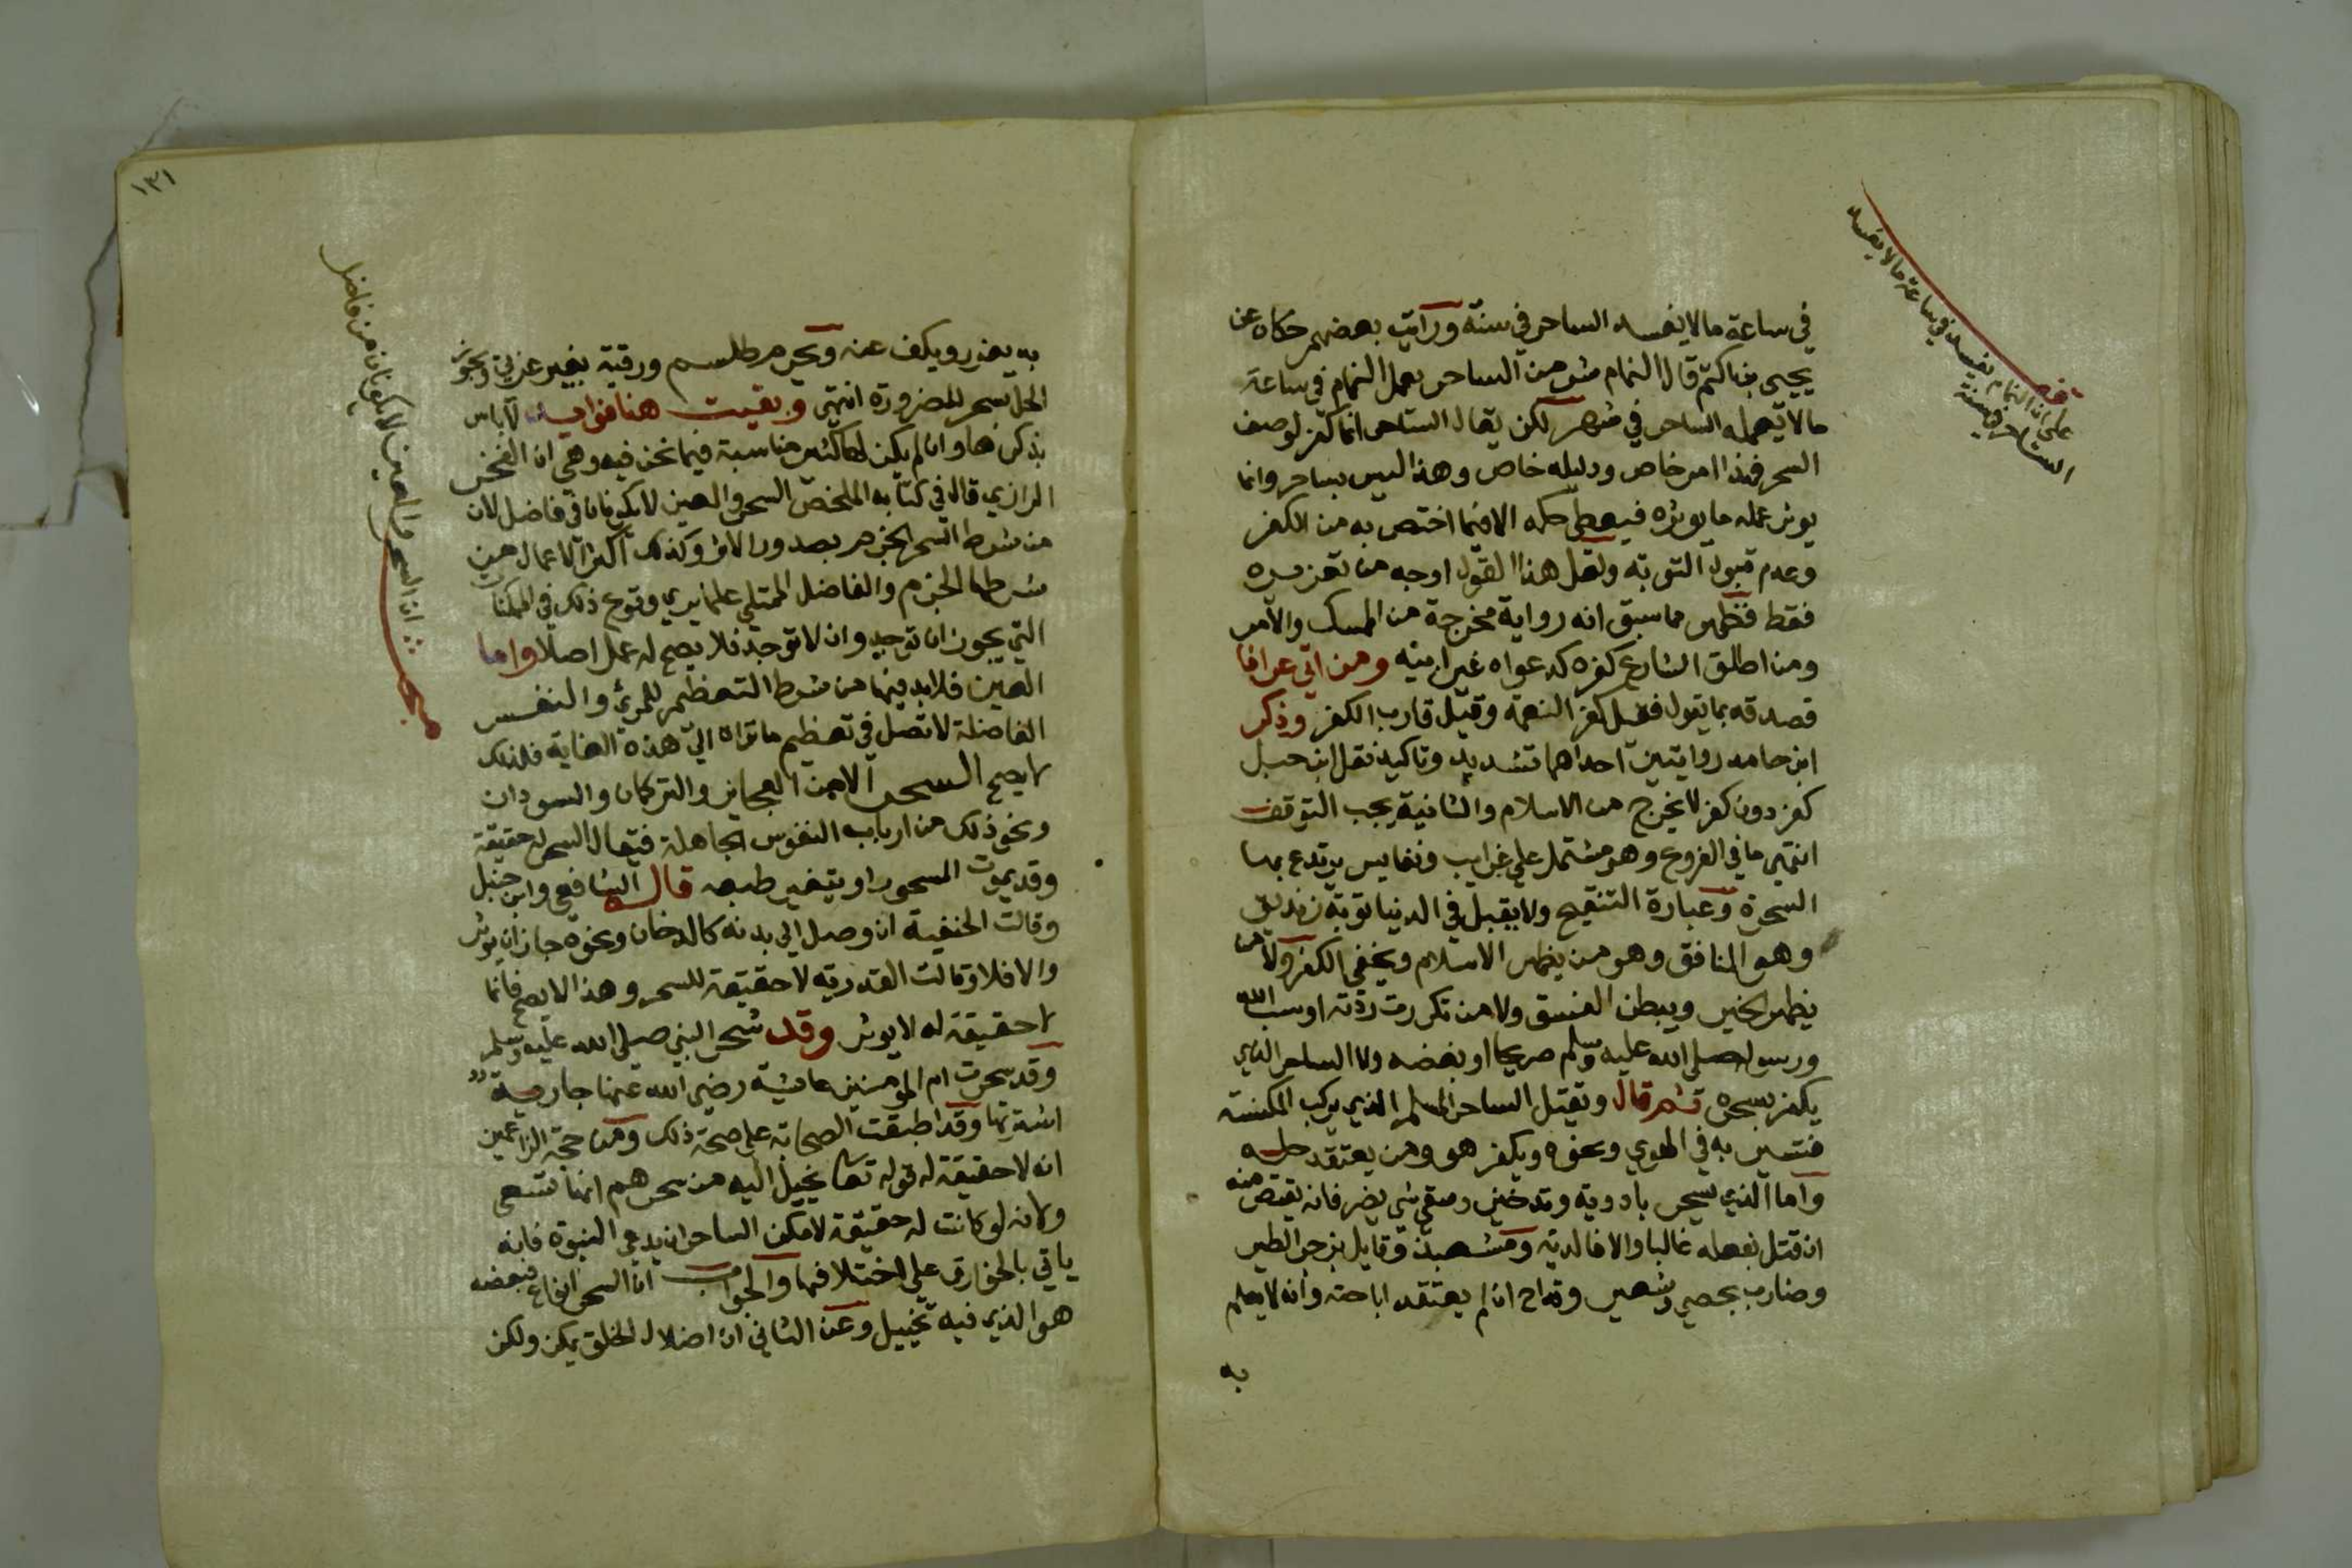 في ساعة ما لا يفسد الساحر في سنة ورايت بعضهم حكاه عن
يحيى بن اكثم قال النمام شر من الساحر يعمل النمام في ساعة
ما لا يعمله الساحر في شهر لكن يقال الساحر انما كفر لوصف
السحر فهذا امر خاص ودليله خاص وهذا ليس بساحر وانما
يوثر عمله ما يوثره فيعطى حكمه الا فيما اختص به من الكفر
وعدم قبول التوبة ولعل هذا القول اوجه من تعزيره
فقط فظهر مما سبق انه رواية مخرجة من الممسك والآمر
ومن اطلق الشارع كفره كدعواه غير ابيه ومن اتى عرافا
فصدقه بما يقول فقيل كفر النعمة وقيل قارب الكفر وذكر
ابن حامد روايتين احداهما تشديد وتاكيد نقل ابن حنبل
كفر دون كفر لا يخرج من الاسلام والثانية يجب التوقف
انتهى ما في الفروع وهو مشتمل على غرايب ونفايس يرتدع بها
السحرة وعبارة التنقيح ولا يقبل في الدنيا توبة زنديق
وهو المنافق وهو من يظهر الاسلام ويخفي الكفر ولا من
يظهر الخير ويبطن الفسق ولا من تكررت ردته او سب الله
ورسوله صلى الله عليه وسلم صريحا او بغضه ولا الساحر الذي
يكفر بسحره ثم قال ويقتل الساحر المسلم الذي يركب المكنسة
فتسير به في الهوي ونحوه ويكفر هو ومن يعتقد حله
واما الذي يسحر بادوية وتدخين وسقي شي يضر فانه يقتص منه
ان قتل بفعله غالبا والا فالدية ومشعبذ وقايل بزجر الطير
وضارب بحصي وشعير وقداح ان لم يعتقد اباحته وانه لا يعلم
به
على ان النمام يفسد في ساعة ما لا يفسد
الساحر في سنة
١٣١
به يعزر ويكف عنه ويحرم طلسم ورقية بغير عربي ويجوز
الحل بسحر للضرورة انتهى وبقيت هنا فوايد لا باس
بذكرها وان لم يكن لها كثير مناسبة فيما نحن فيه وهي ان الفخر
الرازي قال في كتابه الملخص السحر والعين لا يكونان في فاضل لان
من شرط السحر الجزم بصدور الاثر وكذلك اكثر الاعمال من
شرطها الجزم والفاضل الممتلي علما يري وقوع ذلك في الممكنات
التي يجوز ان توجد وان لا توجد فلا يصح له عمل اصلا واما
العين فلابد فيها من شرط التعظيم للمرئ والنفس
الفاضلة لا تصل في تعظيم ما تراه الى هذه الغاية فلذلك
لا يصح السحر الا من العجايز والتركمان والسودان
ونحو ذلك من ارباب النفوس الجاهلة فيقال السحر له حقيقة
وقد يموت المسحور او يتغير طبعه قاله الشافعي وابن حنبل
وقالت الحنفية ان وصل الى بدنه كالدخان ونحوه جاز ان يوثر
والا فلا وقالت القدرية لا حقيقة للسحر وهذا لا يصح فانما
لا حقيقة له لا يوثر وقد سحر النبي صلى الله عليه وسلم
وقد سحرت ام المومنين عايشة رضي الله عنها جارية
اشترتها وقد اطبقت الصحابة على صحة ذلك ومن حجة الزاعمين
انه لا حقيقة له قوله تعا يخيل اليه من سحرهم انها تسعى
ولانه لو كانت له حقيقة لامكن الساحر ان يدعي النبوة فانه
ياتي بالخوارق على اختلافها والجواب ان السحر انواع فبعضه
هو الذي فيه تخييل وعن الثاني ان اضلال الخلق يمكن ولكن
مبحث
ان السحر والعين لا يكونان من فاضل